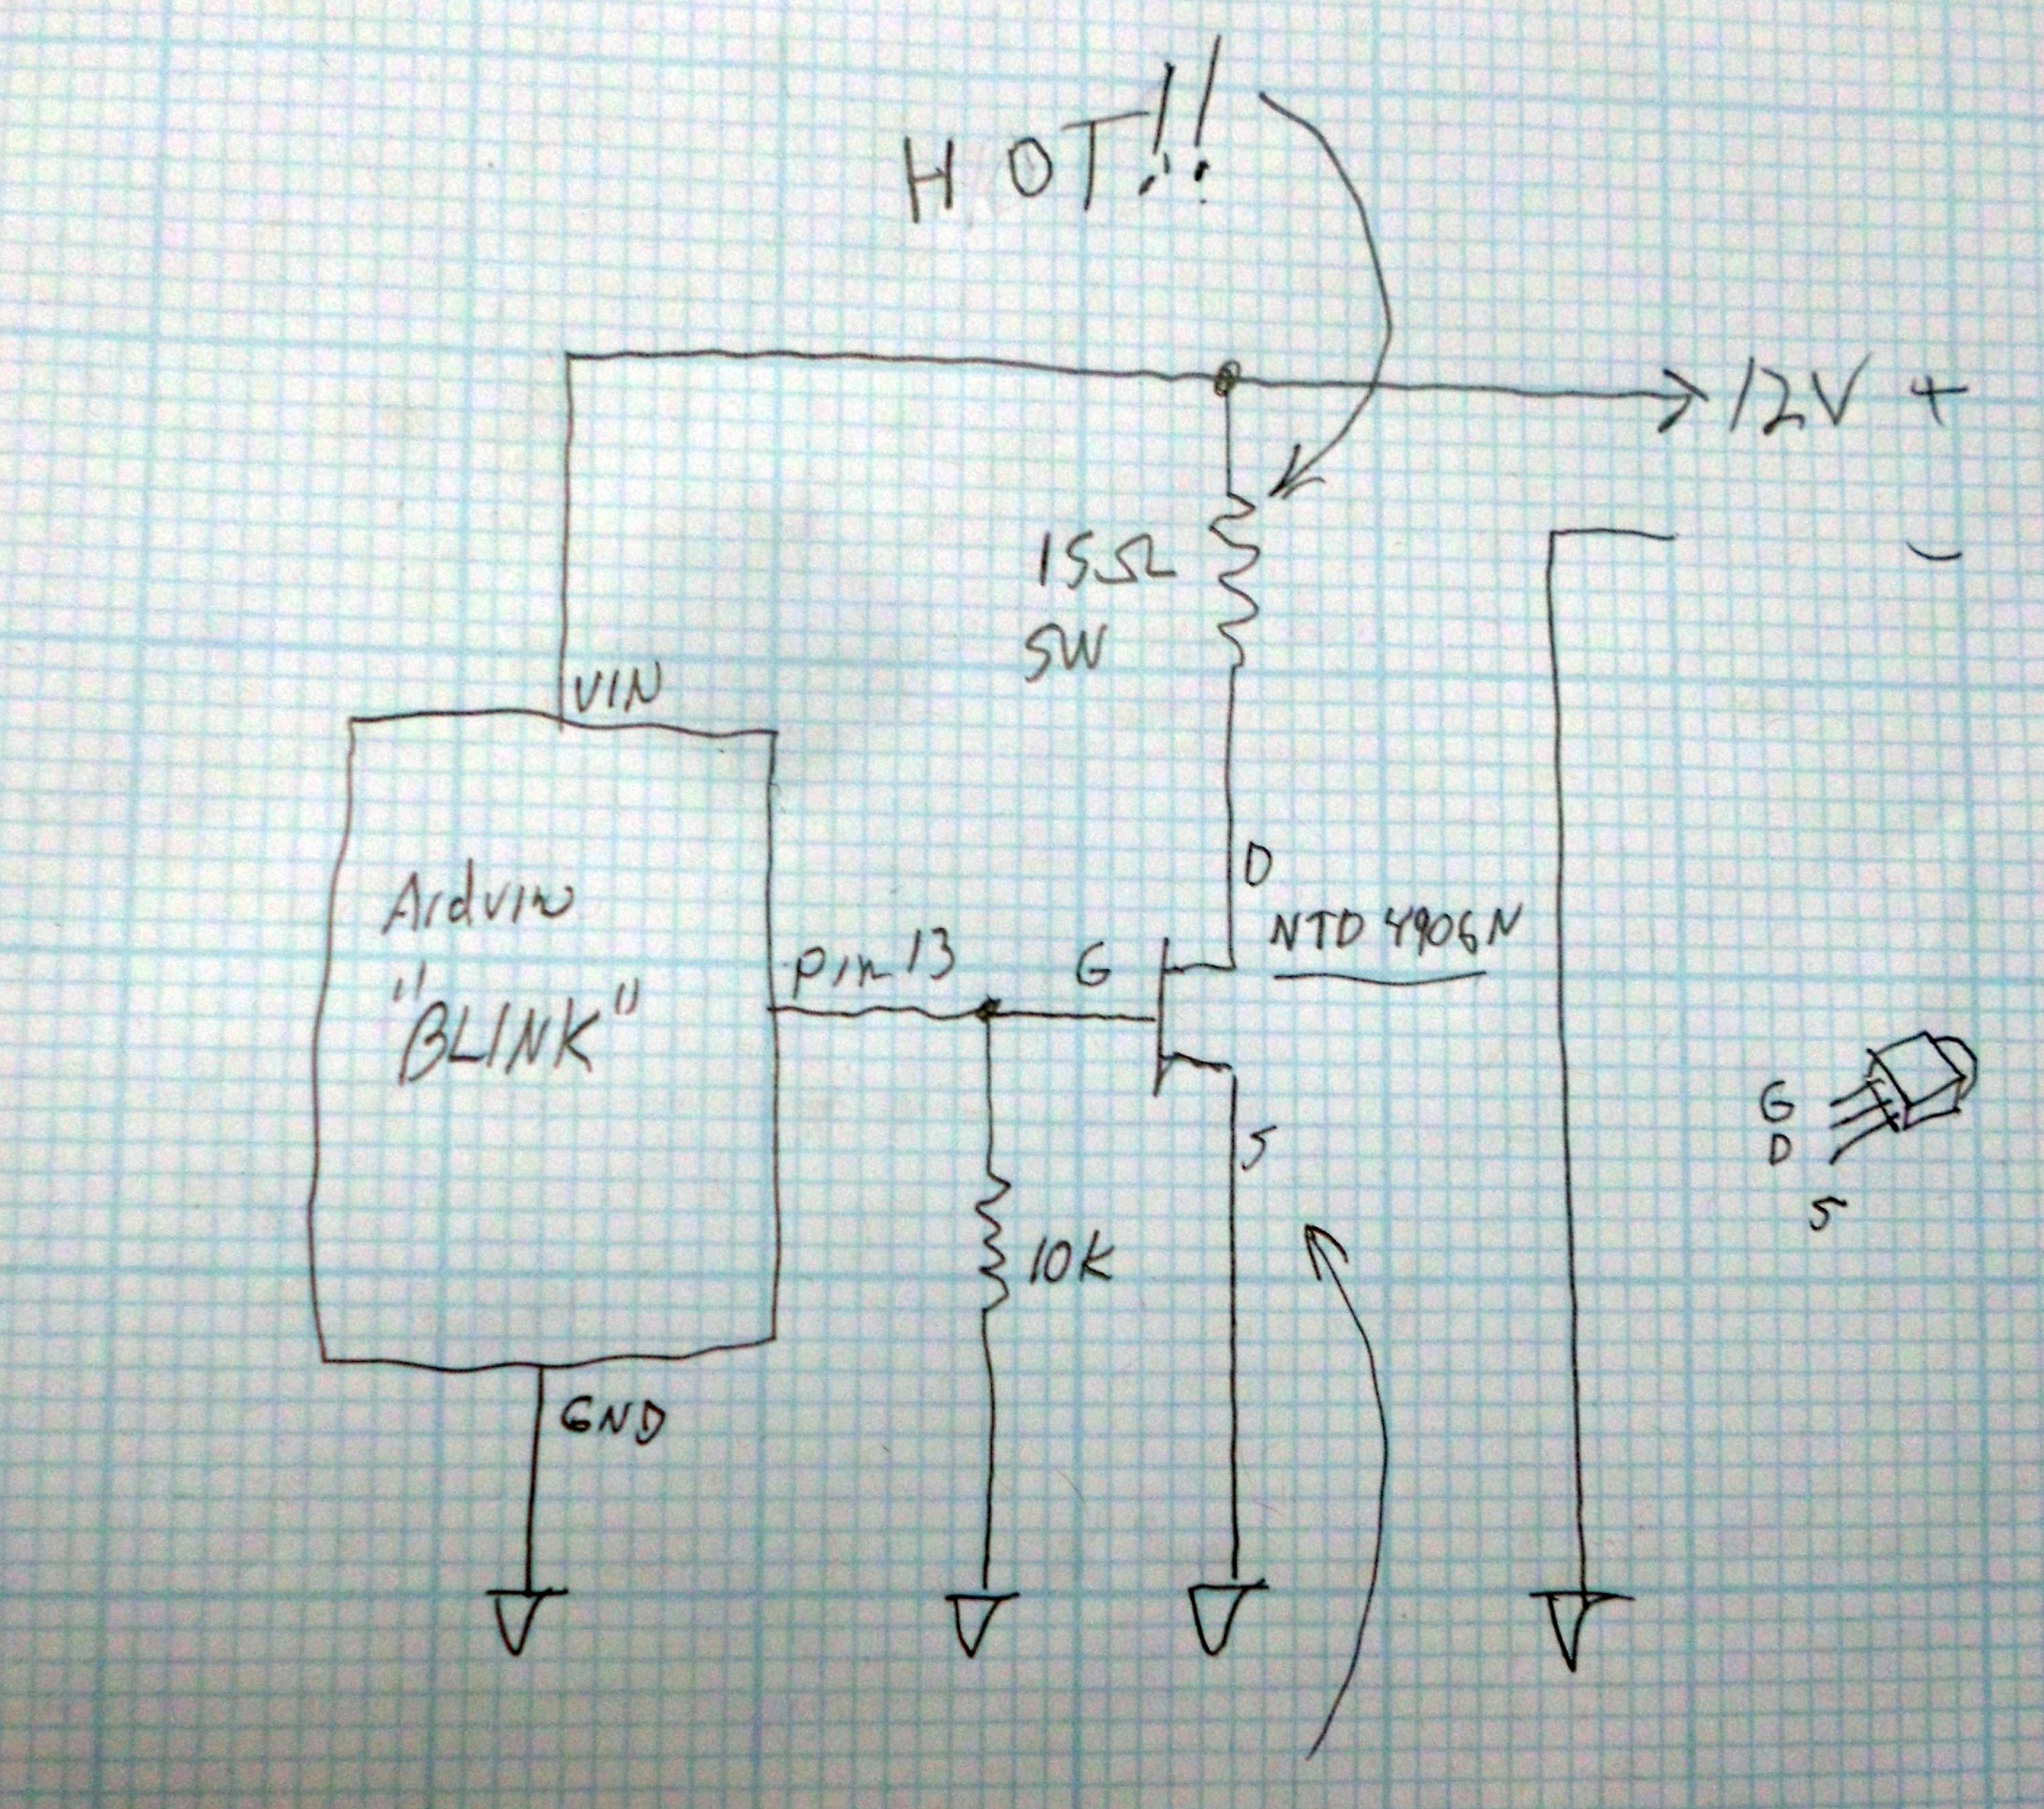 HOT!!
12V +
-
15Ω
5W
VIN
Arduin
"BLINK"
pin 13
G
D
NTD 4906N
S
10K
GND
G
D
S